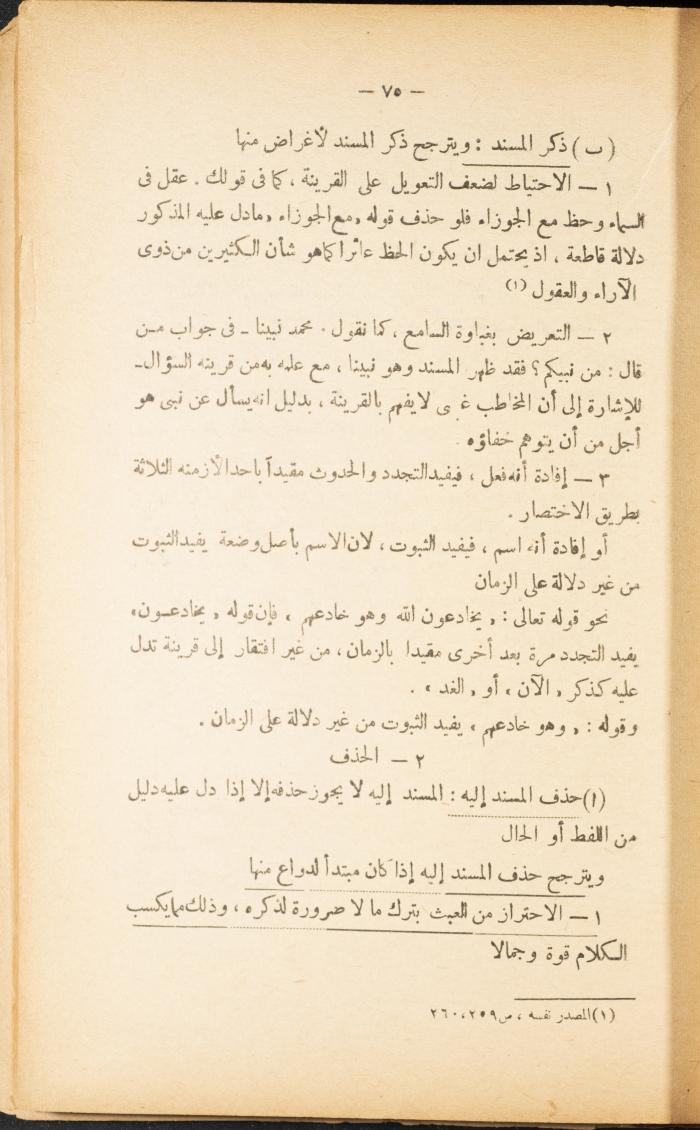 — ٧٥ —
(ب) ذكر المسند : ويترجح ذكر المسند لأغراض منها
١ — الاحتياط لضعف التعويل على القرينة ، كما فى قولك . عقل فى
السماء وحظ مع الجوزاء فلو حذف قوله , مع الجوزاء , مادل عليه المذكور
دلالة قاطعة ، اذ يحتمل ان يكون الحظ عاثرا كما هو شأن الكثيرين من ذوى
الآراء والعقول (١)
٢ — التعريض بغباوة السامع ، كما نقول . محمد نبينا — فى جواب من
قال : من نبيكم ؟ فقد ظهر المسند وهو نبينا ، مع علمه به من قرينه السؤال —
للإشارة إلى أن المخاطب غبى لا يفهم بالقرينة ، بدليل انه يسأل عن نبى هو
أجل من أن يتوهم خفاؤه .
٣ — إفادة أنه فعل ، فيفيد التجدد والحدوث مقيداً باحد الأزمنه الثلاثة
بطريق الاختصار .
أو إفادة أنه اسم ، فيفيد الثبوت ، لان الاسم بأصل وضعة يفيد الثبوت
من غير دلالة على الزمان
نحو قوله تعالى : , يخادعون الله وهو خادعهم ، فإن قوله , يخادعون،
يفيد التجدد مرة بعد أخرى مقيدا بالزمان ، من غير افتقار إلى قرينة تدل
عليه كذكر , الآن ، أو , الغد ، .
وقوله : , وهو خادعهم ، يفيد الثبوت من غير دلالة على الزمان .
٢ — الحذف
(ا) حذف المسند إليه : المسند إليه لا يجوز حذفه إلا إذا دل عليه دليل
من اللفط أو الحال
ويترجح حذف المسند إليه إذا كان مبتدأ لدواع منها
١ — الاحتراز من العبث بترك ما لا ضرورة لذكره ، وذلك مما يكسب
الكلام قوة وجمالا
(١) المصدر نفسه ، ص ٢٥٩ ، ٢٦٠